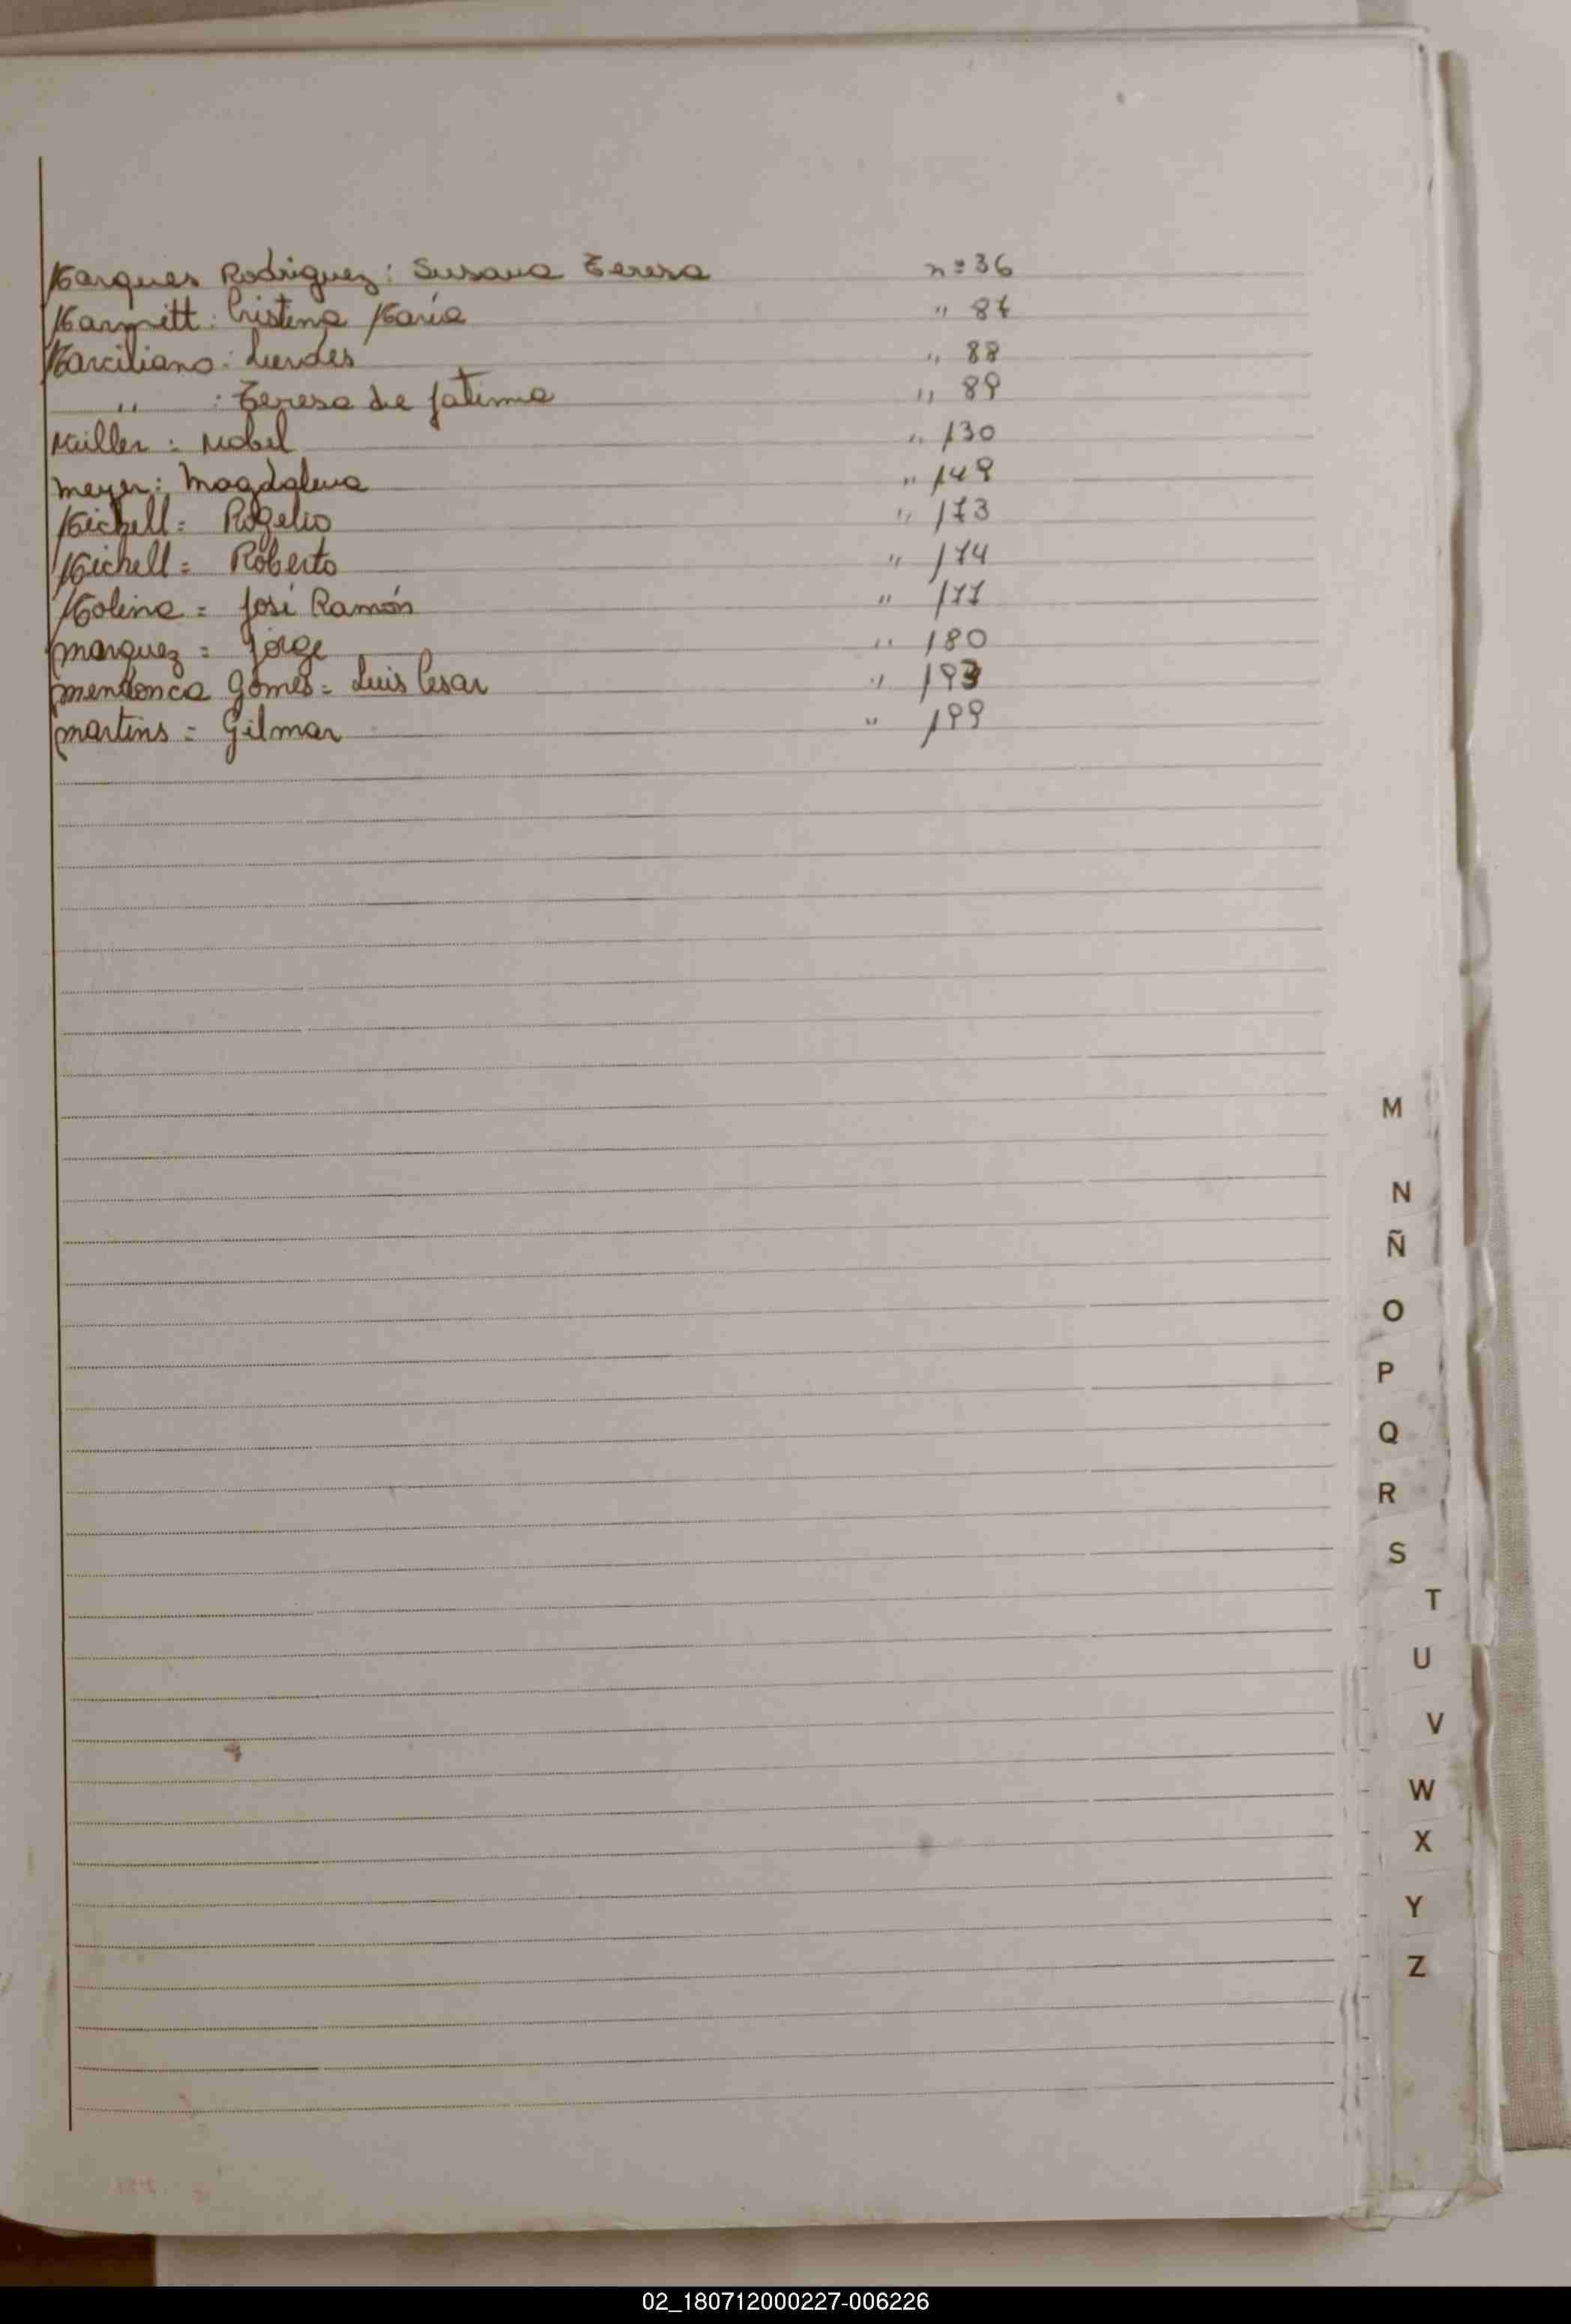 Marques Rodriguez: Susana Teresa n= 36
Marmitt: Cristina María " 87
Marciliano: Lurdes " 88
" : Teresa de Fatima " 89
Müller: Mabel " 130
Meyer: Magdalena " 149
Michell = Rogelio " 173
Michell = Roberto " 174
Molina = José Ramón " 177
Marquez = Jorge " 180
Mendonca Gomes = Luis Cesar " 193
Martins = Gilmar " 199
M
N
Ñ
O
P
Q
R
S
T
U
V
W
X
Y
Z
02_180712000227-006226